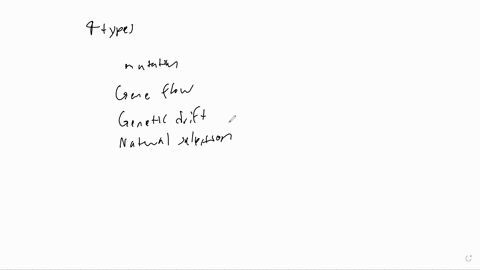 4 types
mutation
Gene flow
Genetic drift
Natural selection